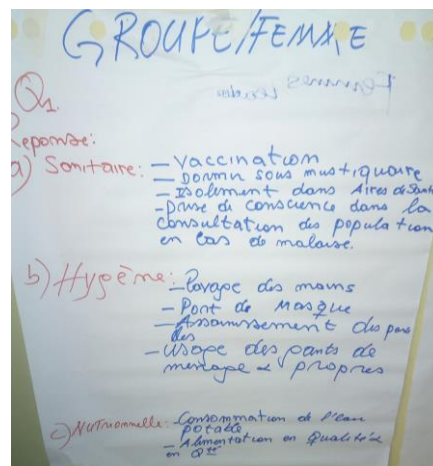 GROUPE/FEMME
Femmes
Q1.
Reponse:
a) Sanitaire: - Vaccination
- Dormir sous mustiquaire
- Isolement dans Aires de Santé
- Prise de conscience dans la
consultation des population
en cas de malaise.
b) Hygène: - Lavage des mains
- Port de Masque
- Assainissement des
des
- Usage des gants de
menage & propres
c) Nutrionnelle: - Consommation de l'eau
potable
- Alimentation en Qualité é
en Qté